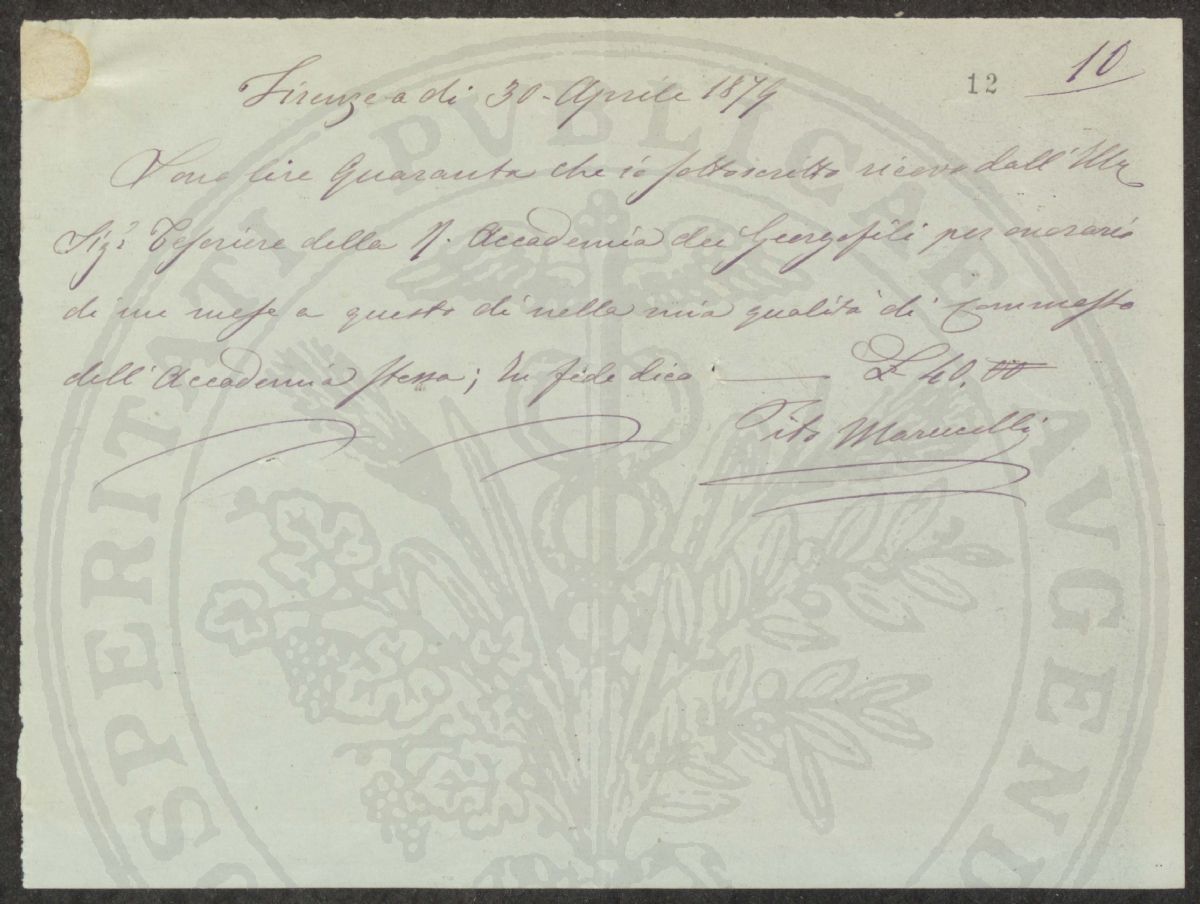 10
12
Firenze a di 30 - Aprile 1879
Sono lire Quaranta che io sottoscritto ricevo dall' Ill.
Sig.r Tesoriere della R. Accademia dei Georgofili per onorario
di un mese a questo dì nella mia qualità di Commesso
dell' Accademia stessa; In fede dico — £ 40. 00
Tito Marucelli
PROSPERITATI PVBLICAE AVGENDAE